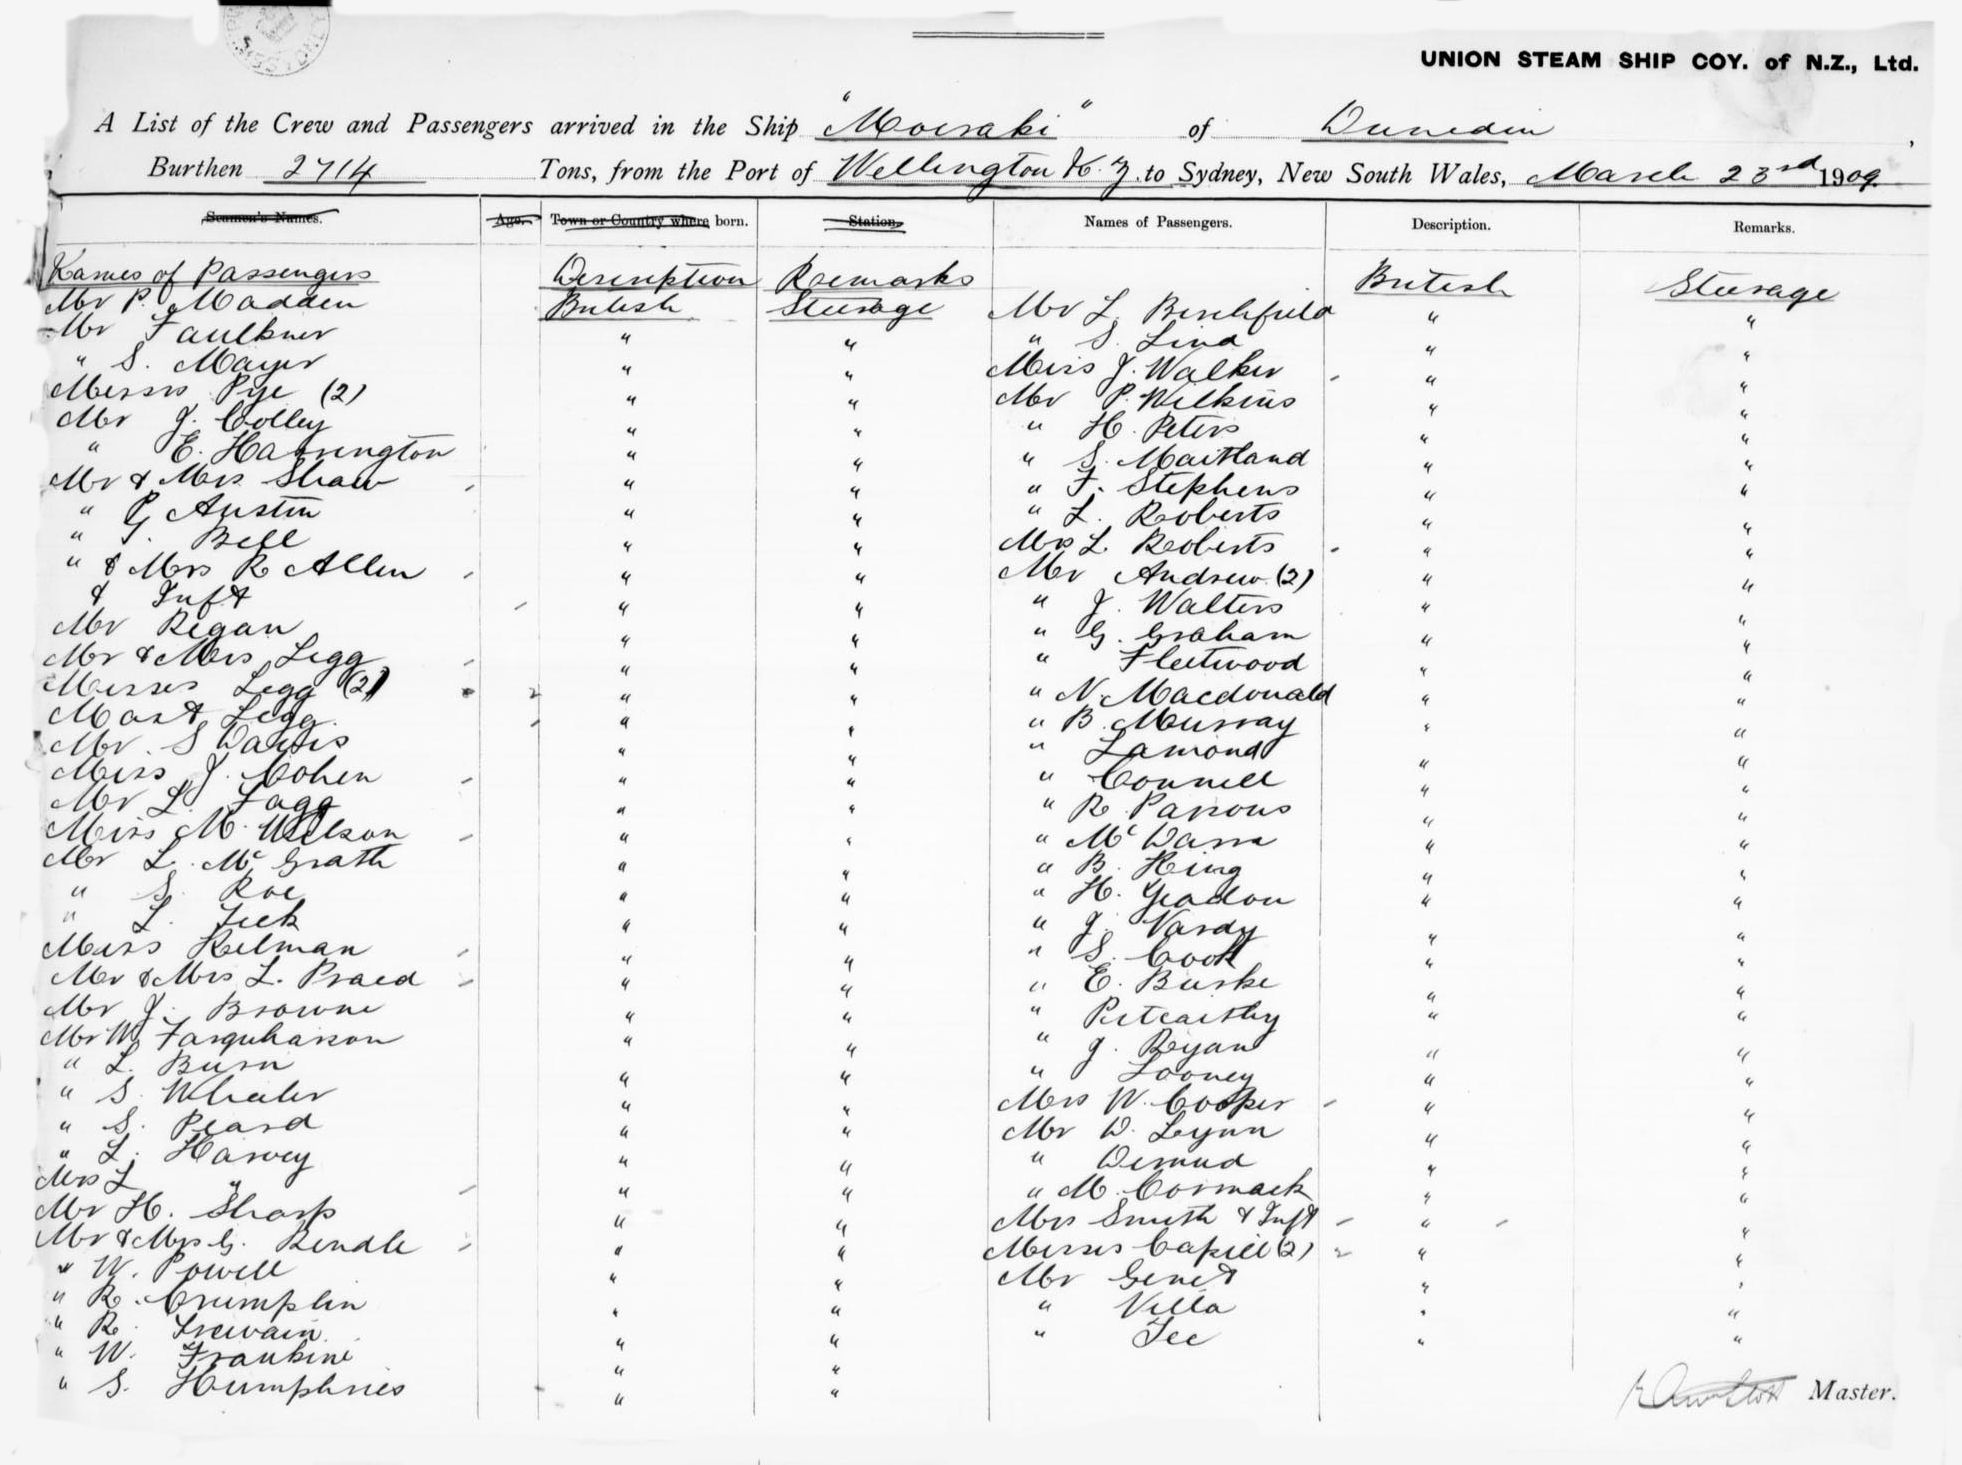 UNION STEAM SHIP COY. of N.Z., Ltd.
A List of the Crew and Passengers arrived in the Ship "Moeraki" of Dunedin
Burthen 2714 Tons, from the Port of Wellington N.Z. to Sydney, New South Wales, March 23rd 1909.
Seamen's Names. Age. Town or Country where born. Station. Names of Passengers. Description. Remarks.
Names of Passengers Description Remarks British Steerage
Mr P. Madden British Steerage Mr L. Birchfield " "
Mr Faulkner " " " S. Lind " "
" S. Mayer " " Miss J. Walker " "
Messrs Pye (2) " " Mr P. Wilkins " "
Mr J. Colley " " " H. Peters " "
" E. Harrington " " " S. Maitland " "
Mr & Mrs Shaw " " " F. Stephens " "
" P. Austin " " " L. Roberts " "
" G. Bell " " Mrs L. Roberts " "
" & Mrs R Allen " " Mr Andrew (2) " "
& Inft " " " J. Walters " "
Mr Regan " " " G. Graham " "
Mr & Mrs Legg " " " Fleetwood " "
Misses Legg (2) " " " N. Macdonald " "
Mast Legg. " " " B. Murray " "
Mr. S Davies " " " Lamond " "
Miss J. Cohen " " " Connell " "
Mr L. Fagg " " " R. Parsons " "
Miss M. Wilson " " " Mc Darra " "
Mr L. Mc Grath " " " B. King " "
" S. Roe " " " H. Geadon " "
" L. Teek " " " J. Vardy " "
Miss Kelman " " " S. Cook " "
Mr & Mrs L. Praed " " " E. Burke " "
Mr J. Browne " " " Pitcaithy " "
Mr W. Farquharson " " " J. Ryan " "
" L. Burn " " " Looney " "
" S. Wheeler " " Mrs W. Cooper " "
" S. Peard " " Mr D. Lynn " "
" L. Harvey " " " "
Mrs L " " " " M. Cormack " "
Mr H. Sharp " " Mrs Smith & Inft " "
Mr & Mrs G. Rendle " " Misses Capill (2) " "
" W. Powell " " Mr Genet " "
" R. Crumplin " " " Villa " "
" R. Trewain " " " Tee " "
" W. " "
" S. Humphries " "
Master.